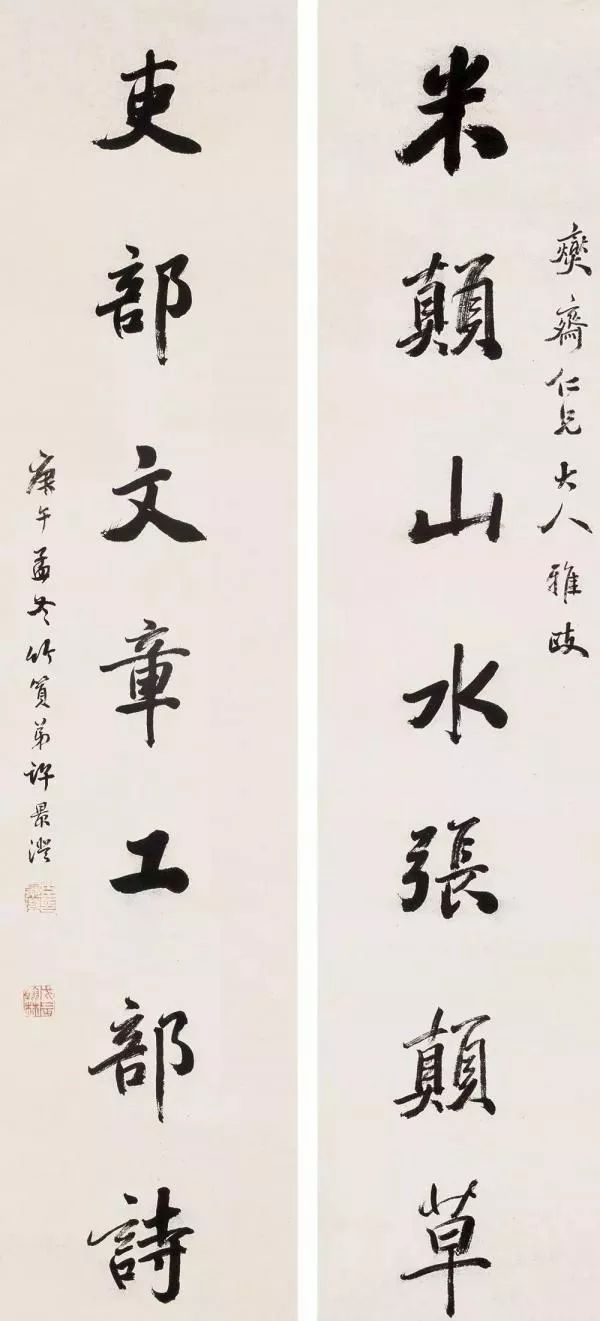 燮齋仁兄大人雅政
米顛山水張顛草
吏部文章工部詩
庚午孟冬竹篔弟許景澄